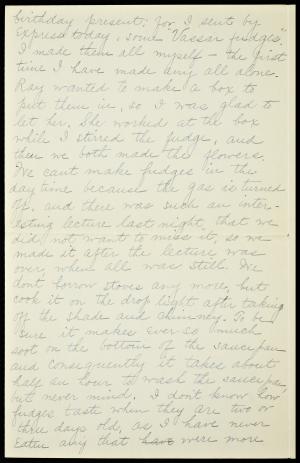 birthday present; for I sent by
Express today, some "Vassar fudges"
I made them all myself - the first
time I have made any all alone.
Ray wanted to make a box to
put them in, so I was glad to
let her. She worked at the box
while I stirred the fudge, and
then we both made the flowers.
We cant make fudges in the
day time because the gas is turned
off, and there was such an inter-
esting lecture last night, that we
did not want to miss it, so we
made it after the lecture was
over, when all was still. We
dont borrow stoves any more, but
cook it on the drop light after taking
off the shade and chimney. To be
sure it makes ever so much
soot on the bottom of the saucepan
and consequently it takes about
half an hour to wash the saucepan,
but never mind. I don't know how
fudges taste when they are two or
three days old, as I have never
Eaten any that have were more